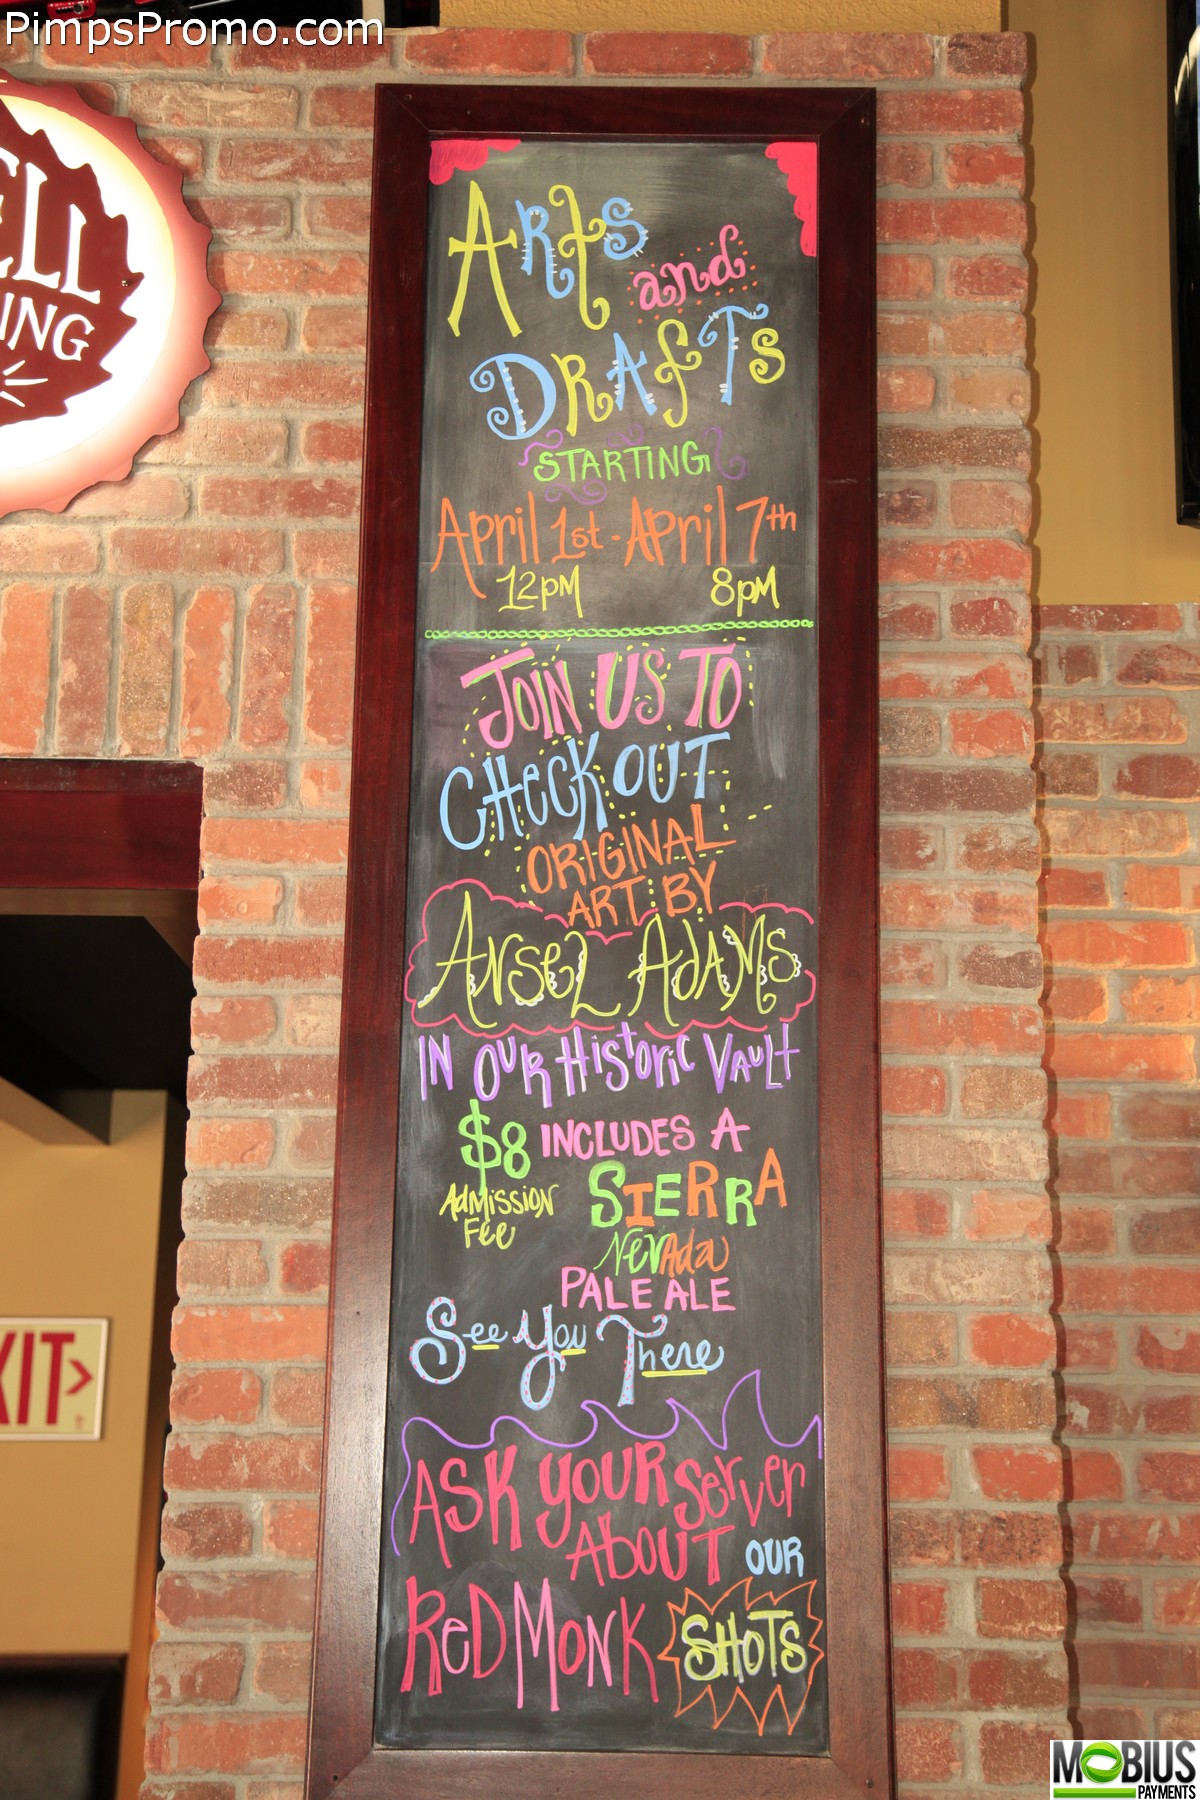 PimpsPromo.com
ELL
ING
Arts
and
Drafts
STARTING
April 1st - April 7th
12pm 8pm
JOIN US TO
CHECK OUT
ORIGINAL
ART BY
Ansel Adams
IN OUR HISTORIC VAULT
$8 INCLUDES A
Admission
Fee
SIERRA
Nevada
PALE ALE
See You There
ASK YOUR Server
About OUR
RED MONK SHOTS
EXIT >
MOBIUS
PAYMENTS